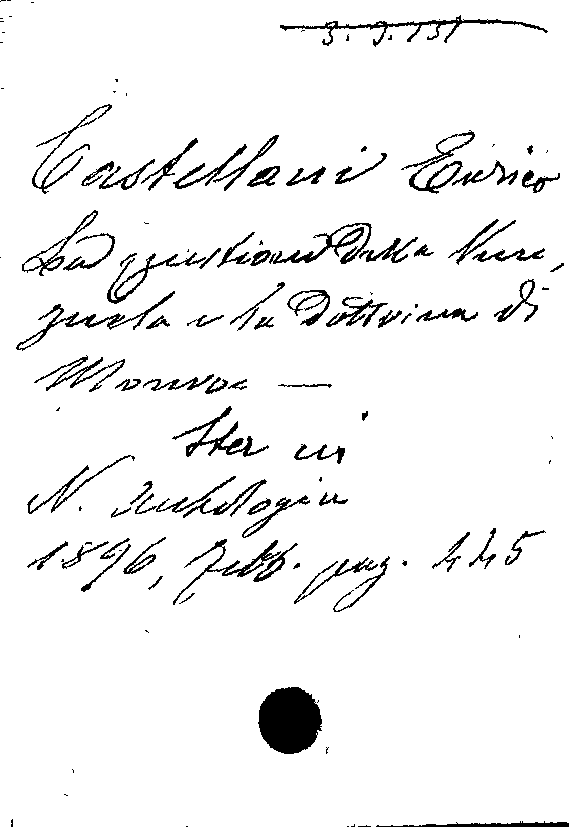 3. 9. 131
Castellani Enrico
La questione della Vene,
zuela e la Dottrina di
Monroe —
Sta in
N. Antologia
1896, Febb. pag. 445